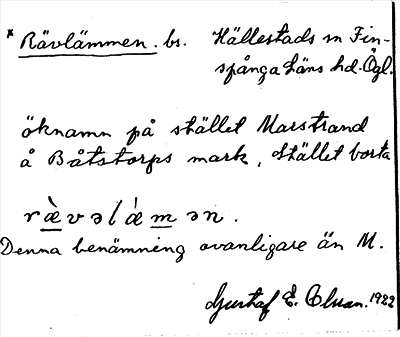 *Rävlämmen. bs. Hällestads sn Fin-
spånga läns hd. Ögl.
öknamn på stället Marstrand
å Båtstorps mark, stället borta
rævəlæmən.
Denna benämning ovanligare än M.
Gustaf E. 1922